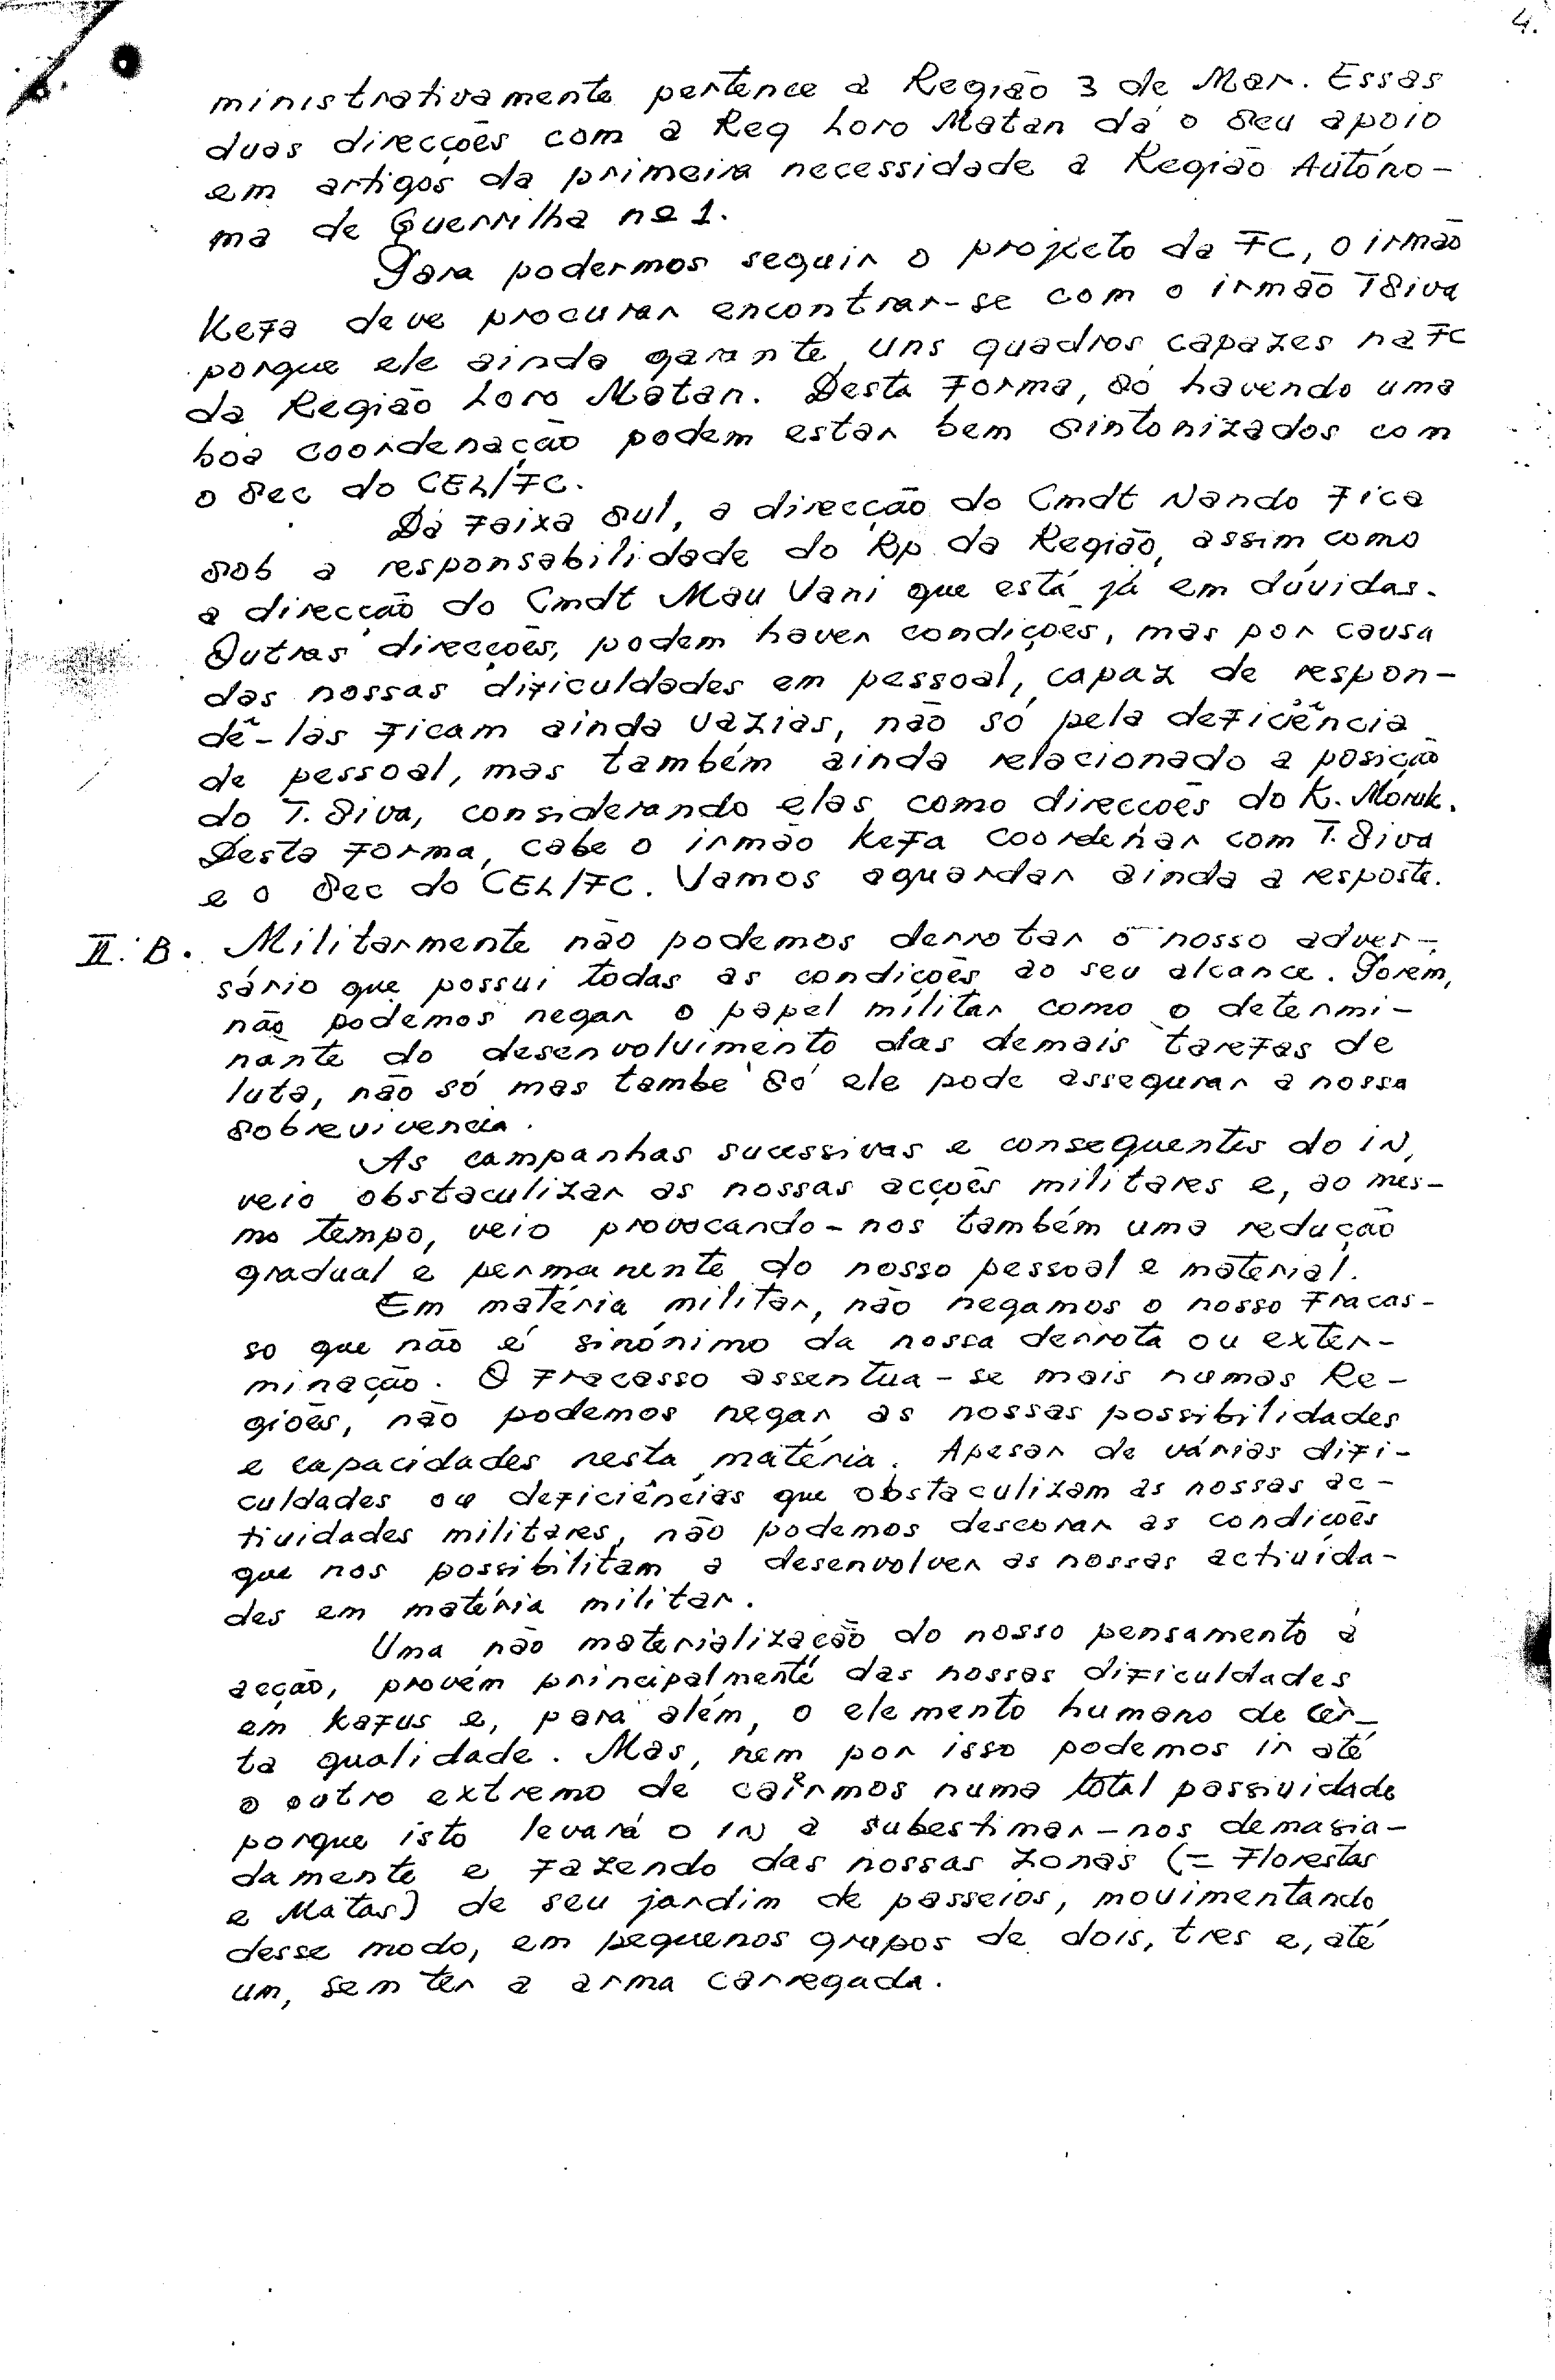 4.
ministrativamente pertence a Região 3 de Mar. Essas
duas direcções com a Reg Loro Matan dá o seu apoio
em artigos da primeira necessidade a Região Autóno-
ma de Guerrilha nº 1.
Para podermos seguir o projecto da FC, o irmão
Kefa deve procurar encontrar-se com o irmão T Siva
porque ele ainda garante uns quadros capazes na FC
da Região Loro Matan. Desta forma, só havendo uma
boa coordenação podem estar bem sintonizados com
o Sec do CEL/FC.
Da faixa sul, a direcção do Cmdt Nando fica
sob a responsabilidade do Rp da Região, assim como
a direcção do Cmdt Mau Vani que está já em dúvidas.
Outras direcções, podem haver condições, mas por causa
das nossas dificuldades em pessoal, capaz de respon-
dê-las ficam ainda vazias, não só pela deficiência
de pessoal, mas também ainda relacionado a posição
do T. Siva, considerando elas como direccões do K. Moruk.
Desta forma, cabe o irmão Kefa coordenar com T. Siva
e o Sec do CEL/FC. Vamos aguardar ainda a resposte.
II. B. Militarmente não podemos derrotar o nosso adver-
sário que possui todas as condições ao seu alcance. Porem,
não podemos negar o papel militar como o determi-
nante do desenvolvimento das demais tarefas de
luta, não só mas tambe só ele pode assegurar a nossa
sobrevivencia.
As campanhas sucessivas e consequentes do iN,
veio obstaculizar as nossas acções militares e, ao mes-
mo tempo, veio provocando-nos também uma redução
gradual e permanente do nosso pessoal e material.
Em matéria militar, não negamos o nosso fracas-
so que não é sinónimo da nossa derrota ou exter-
minação. O fracasso assentua-se mais numas Re-
giões, não podemos negar as nossas possibilidades
e capacidades nesta matéria. Apesar de várias difi-
culdades ou deficiências que obstaculizam as nossas ac-
tividades militares, não podemos descorar as condicões
que nos possibilitam a desenvolver as nossas activida-
des em matéria militar.
Uma não materialização do nosso pensamento à
acção, provém principalmente das nossas dificuldades
em kafus e, para além, o elemento humano de cer-
ta qualidade. Mas, nem por isso podemos ir até
o outro extremo de cairmos numa total passividade
porque isto levará o IN a subestimar-nos demasia-
damente e fazendo das nossas zonas (= Florestas
e Matas) de seu jardim de passeios, movimentando
desse modo, em pequenos grupos de dois, tres e, até
um, sem ter a arma carregada.